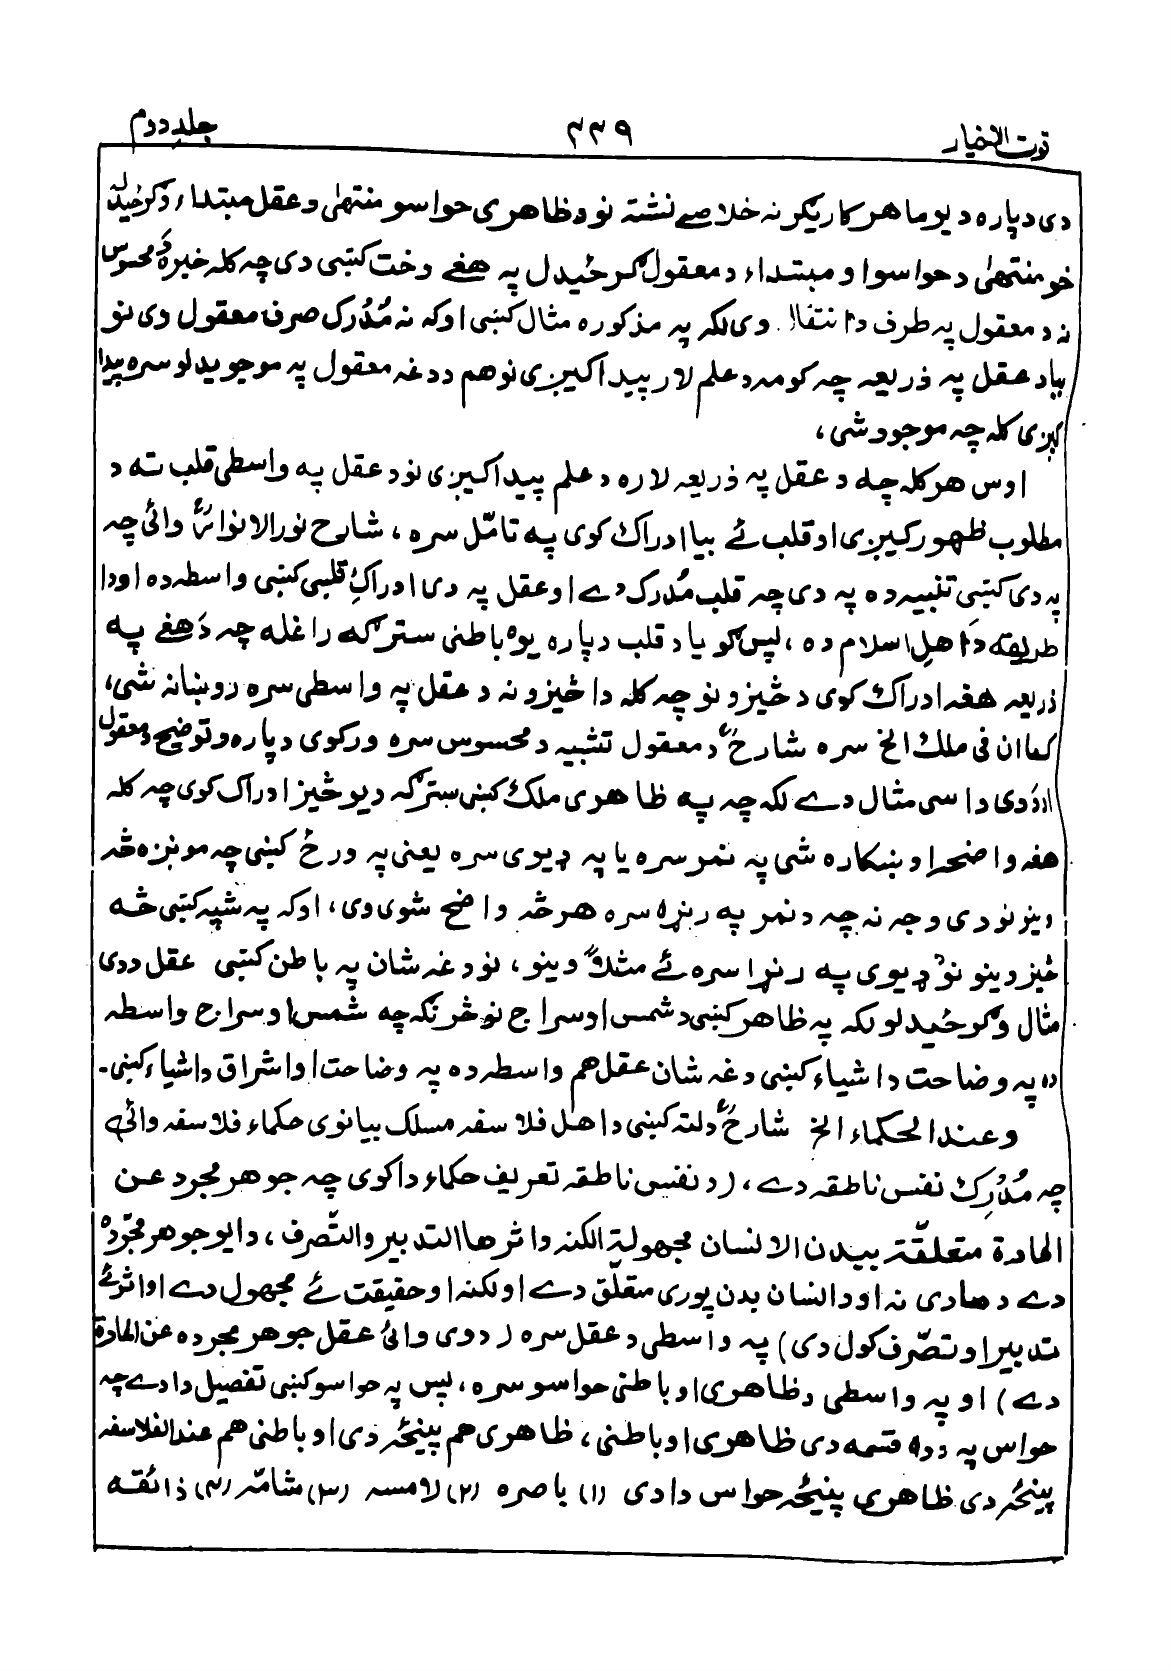 قوت الاخیار
۳۳۹
جلد دوم
دی دپاره د یو ماهر کاریګر نه خلاصے نشته نو د ظاهری حواسو منتهیٰ و عقل مبتداء وګرځیدله
خو منتهیٰ د حواسو او مبتداء د معقول ګرځیدل په هغے وخت کښی دی چه کله خبره د محسوس
نه د معقول په طرف د انتقال وی لکه په مذکوره مثال کښی او که نه مُدرَک صرف معقول وی نو
بیا د عقل په ذریعه چه کومه د علم لار پیدا کیږی نو هم د دغه معقول په موجویدلو سره پیدا
کیږی کله چه موجود شی،
اوس هر کله چه د عقل په ذریعه لاره د علم پیدا کیږی نو د عقل په واسطی قلب ته د
مطلوب ظهور کیږی او قلب ئے بیا ادراک کوی په تامّل سره، شارح نورالانوارؒ وائی چه
په دی کښی تنبیه ده په دی چه قلب مُدرِک دے او عقل په دی ادراکِ قلبی کښی واسطه ده او دا
طریقه د اهلِ اسلام ده، پس ګویا د قلب دپاره یوه باطنی سترګه راغله چه دَ هغے په
ذریعه هغه ادراک کوی د څیزونو چه کله دا څیزونه د عقل په واسطی سره روښانه شی،
کما ان فی ملک الخ سره شارحؒ د معقول تشبیه د محسوس سره ورکوی دپاره و توضیح د معقول
او دَ دی داسی مثال دے لکه چه په ظاهری ملک کښی سترګه د یو څیز ادراک کوی چه کله
هغه واضحه او ښکاره شی په نمر سره یا په ډیوی سره یعنی په ورځ کښی چه مونږه څه
وینو نو دی وجه نه چه د نمر په رنړه سره هر څه واضح شوی وی، او که په شپه کښی څه
څیز وینو نو ډیوی په رنړا سره ئے مثلاً وینو، نو دغه شان په باطن کښی عقل د دی
مثال وګرځیدلو لکه په ظاهر کښی د شمس او سراج نو څرنګه چه شمس او سراج واسطه
ده په وضاحت د اشیاء کښی دغه شان عقل هم واسطه ده په وضاحت او اشراق د اشیاء کښی۔
وعند الحکماء الخ شارحؒ دلته کښی د اهل فلاسفه مسلک بیانوی حکماء فلاسفه وائی
چه مُدرِک نفس ناطقه دے، (د نفس ناطقه تعریف حکماء داکوی چه جوهر مجرد عن
المادة متعلقة ببدن الانسان مجهولة الکنه واثرها التدبیر والتصرف، دا یو جوهر مجرّده
دے د مادی نه او د انسان بدن پوری متعلّق دے او لکنه او حقیقت ئے مجهول دے او اثر ئے
تدبیر او تصرّف کول دی) په واسطی د عقل سره (دوی وائی عقل جوهر مجرده عن المادة
دے) او په واسطی د ظاهری او باطنی حواسو سره، پس په حواسو کښی تفصیل دا دے چه
حواس په دوه قسمه دی ظاهری او باطنی، ظاهری هم پینځه دی او باطنی هم عند الفلاسفه
پینځه دی ظاهری پنیځه حواس دا دی (۱) باصره (۲) لامسه (۳) شامّه (۴) ذائقه